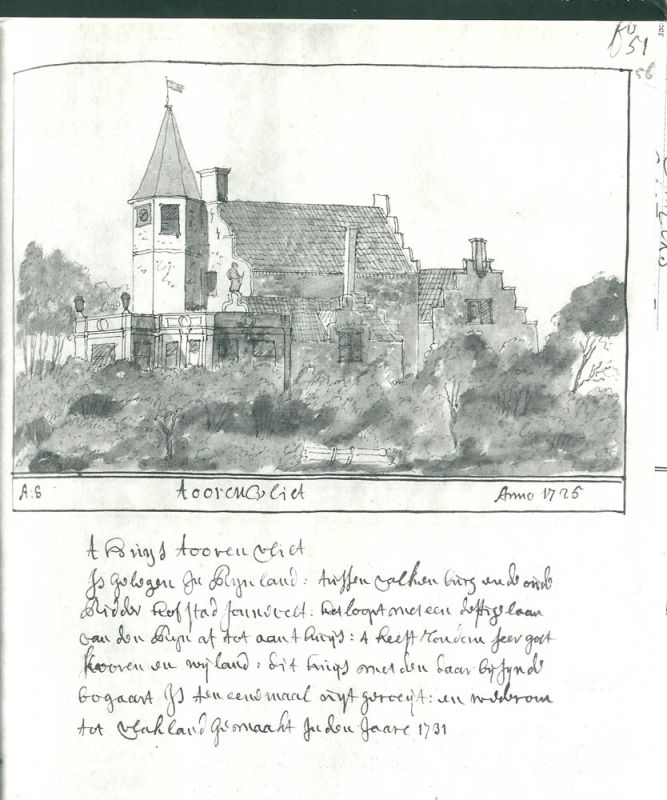 51
56
A:S toorenvliet Anno 1725
t huijs tooren vliet
Is gelegen In Rijnland: tussen valken burg ende oude
Ridder hof stad Sandvelt: het loopt met een deftige laan
van den Rijn af tot aan t huijs: t heeft rondom seer goet
kooren en wijland: dit huijs met den daar bij sijnde
bogaart Is ten eene maal uijt geroeijt: en wederom
tot vlak land gemaakt In den Jaare 1731